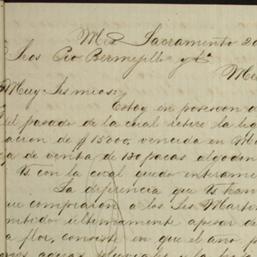 Mex Sacramento 20
Sres Pio Bermejillo y Ca
Muy Sres mios:
Estoy en posesion d
el pasado de la cual retire la le
acion de $15000, vencida en M
a de venta de 150 pacas algodon
Vs con la cual quedo enterame
La diferencia que V han
ue compraron a los Sres Marte
mitido ultimamente apesar d
a flor, consiste en que el año p